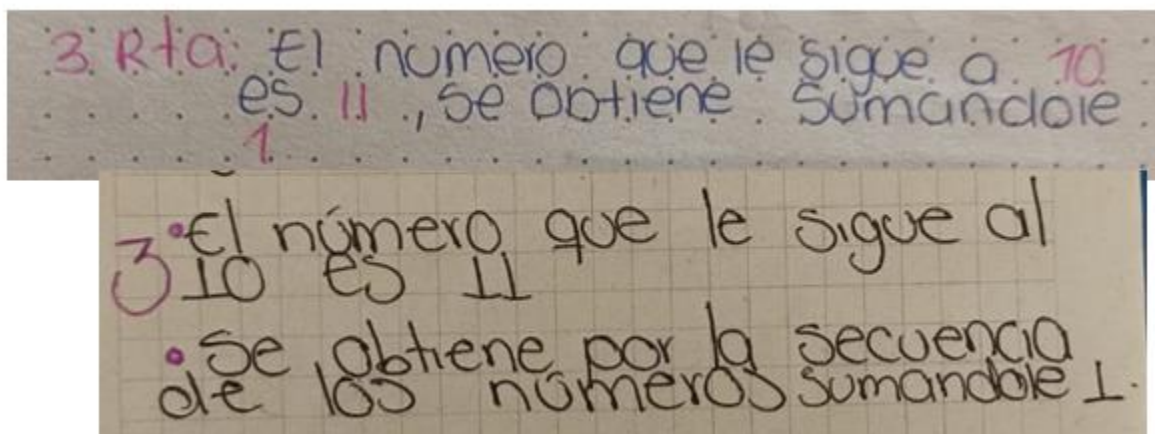 3. Rta: El numero que le sigue a 10
es 11, se obtiene sumandole
1
3 • El número que le sigue al
10 es 11
• Se obtiene por la secuencia
de los números sumandole 1.